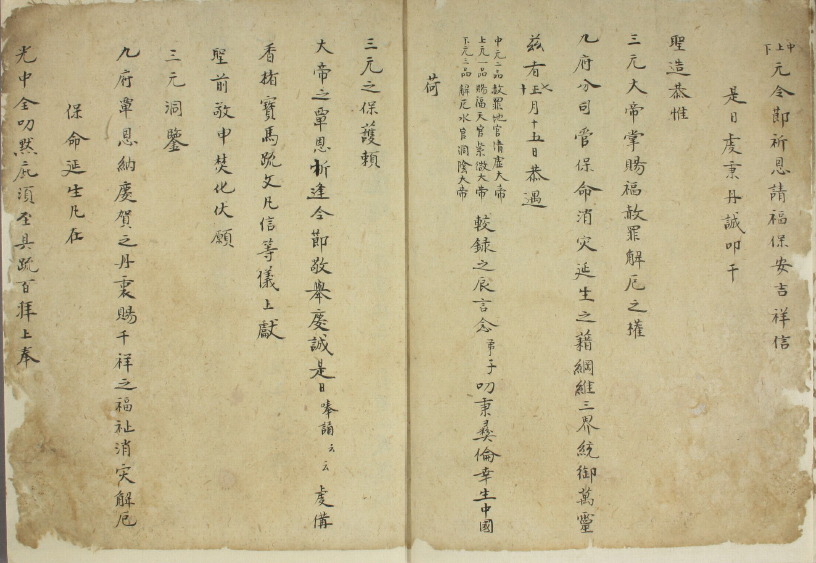 上中下元令節祈恩請福保安吉祥信
是日虔秉丹誠叩干
聖造恭惟
三元大帝掌賜福赦罪解厄之權
九府分司管保命消灾延生之藉綱維三界統御萬靈
茲有正七十月十五日恭遇
中元二品赦罪地官清虛大帝
上元一品賜福天官紫微大帝
下元三品解厄水官洞陰大帝
較録之辰言念弟子叨秉彞倫幸生中國
荷
三元之保護賴
大帝之覃恩忻逢令節敬舉慶誠是日嗪誦云云虔備
香楮寶馬疏文凡信等儀上獻
聖前敬申焚化伏願
三元洞鑒
九府覃恩納慶賀之丹衷賜千祥之福祉消灾解厄
保命延生凡在
光中全叨黙庇須至具疏百拜上奉